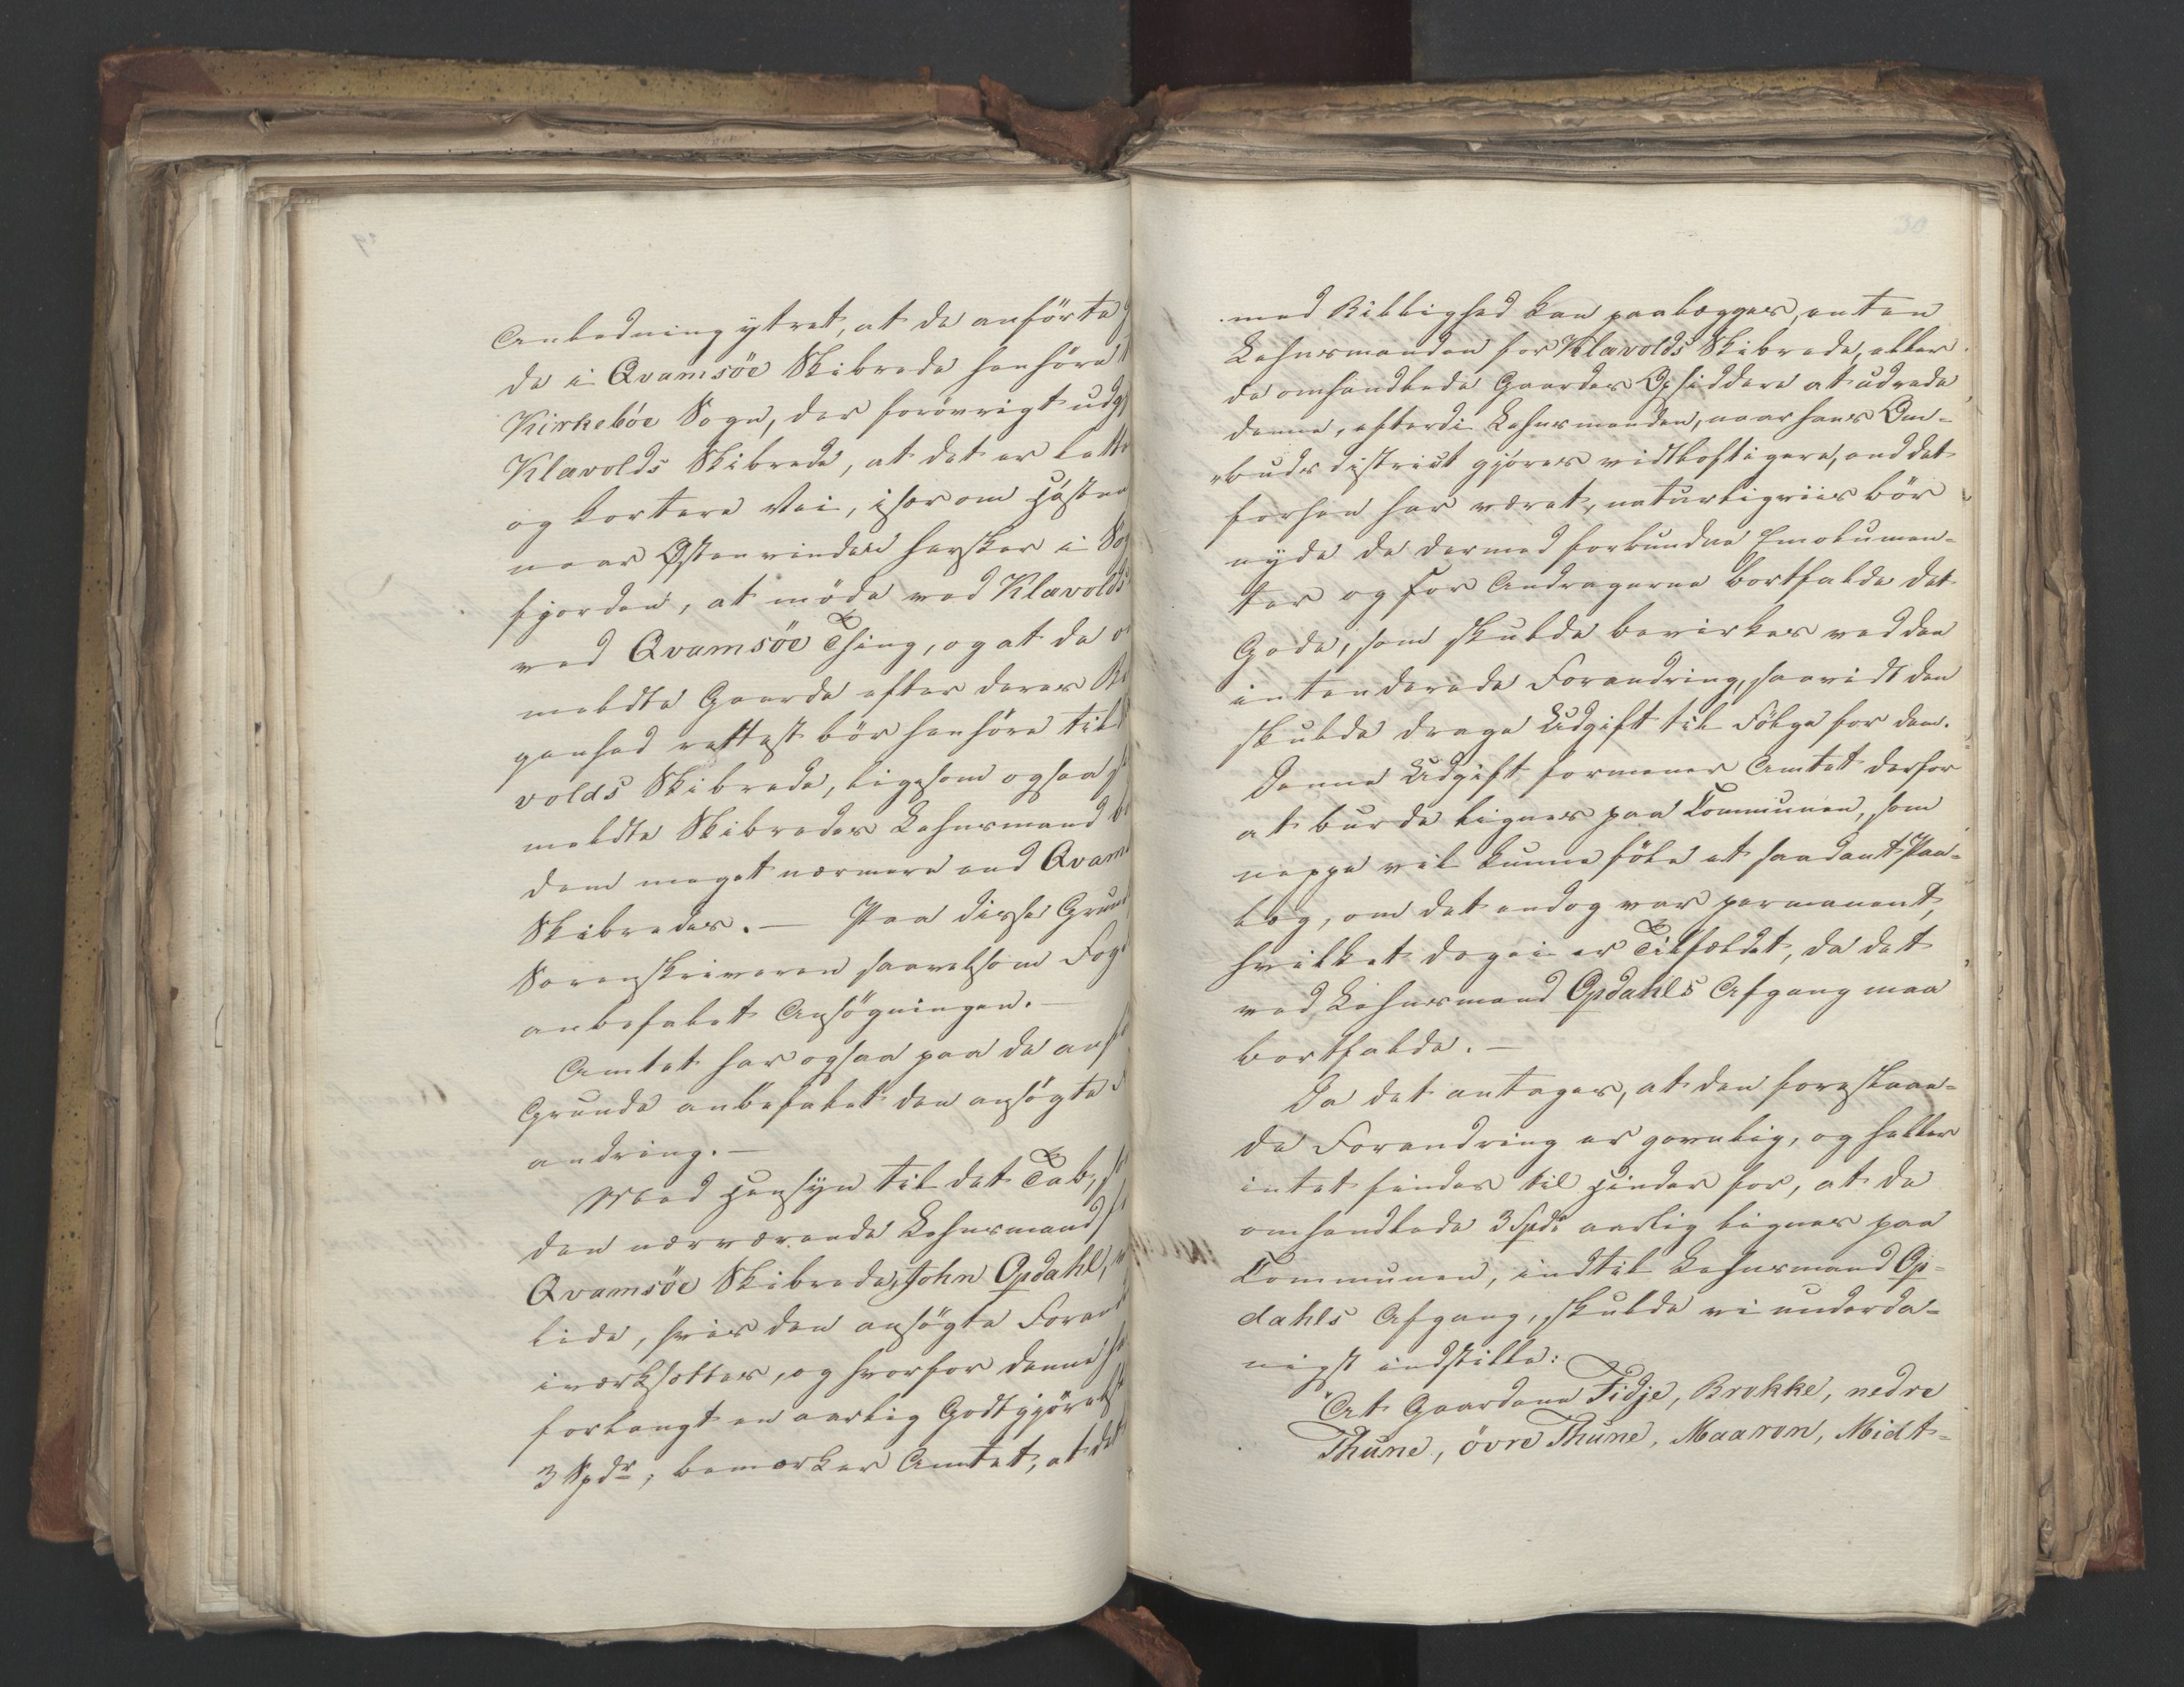 Anledning ytret, at de anförte
de i Qvamsöe Skibrede henhöre
Kirkeböe Sogn, der forövrigt udg
Klævolds Skibrede, at det er lette
og kortere Vei, især om Hösten
naar Östenvinden hersker i
fjorden, at möde ved Klævolds
ved Qvamsöe Thing, og at de
meldte Gaarde efter deres
genhed rettest bör henföre til
volds Skibrede, ligesom ogsaa
meldte Skibredes Lehnsmand
dem meget nærmere end Qvam
Skibredes. — Paa disse Grund
Sorenskriveren saavelsom Fog
anbefalet Ansögningen. —
Amtet har ogsaa paa de anf
Grunde anbefalet den ansögte
andring. —
Med Hensyn til det Tab,
den nærværende Lehnsmand
Qvamsöe Skibrede, John Opdahl,
lide, hvis den ansögte Foran
iværksættes, og hvorfor denne
forlangt en aarlig Godtgjörels
3 Spdr, bemærker Amtet, at det
30
med Billighed kan paalægges, enten
Lehnsmanden for Klævolds Skibrede, eller
de omhandlede Gaardes Opsiddere at udrede
denne, efterdi Lehnsmanden, naar hans Om-
"buds district gjöres vidtløftigere, end det
forhen har været, naturligviis bör
nyde de dermed forbundne Emolumen-
ter og for Andragerne bortfalde det
Gode, som skulde bevirkes ved den
intenderede Forandring, saavidt den
skulde drage Udgift til Fölge for dem.
Denne Udgift formener Amtet derfor
at burde lignes paa Communen, som
neppe vil kunne föle et saadant Paa-
læg, om det endog var permanent,
hvilket dog ei er Tilfældet, da det
ved Lehnsmand Opdahls Afgang maa
bortfalde. —
Da det antages, at den foreslaae-
de Forandring er gavnlig, og heller
intet findes til Hinder for, at de
omhandlede 3 Spdr aarlig lignes paa
Communen, indtil Lehnsmand Op-
dahls Afgang, skulde vi underda-
nigst indstille:
"At Gaardene Fidje, Brekke, nedre
Thune, övre Thune, Maaren, Midt-